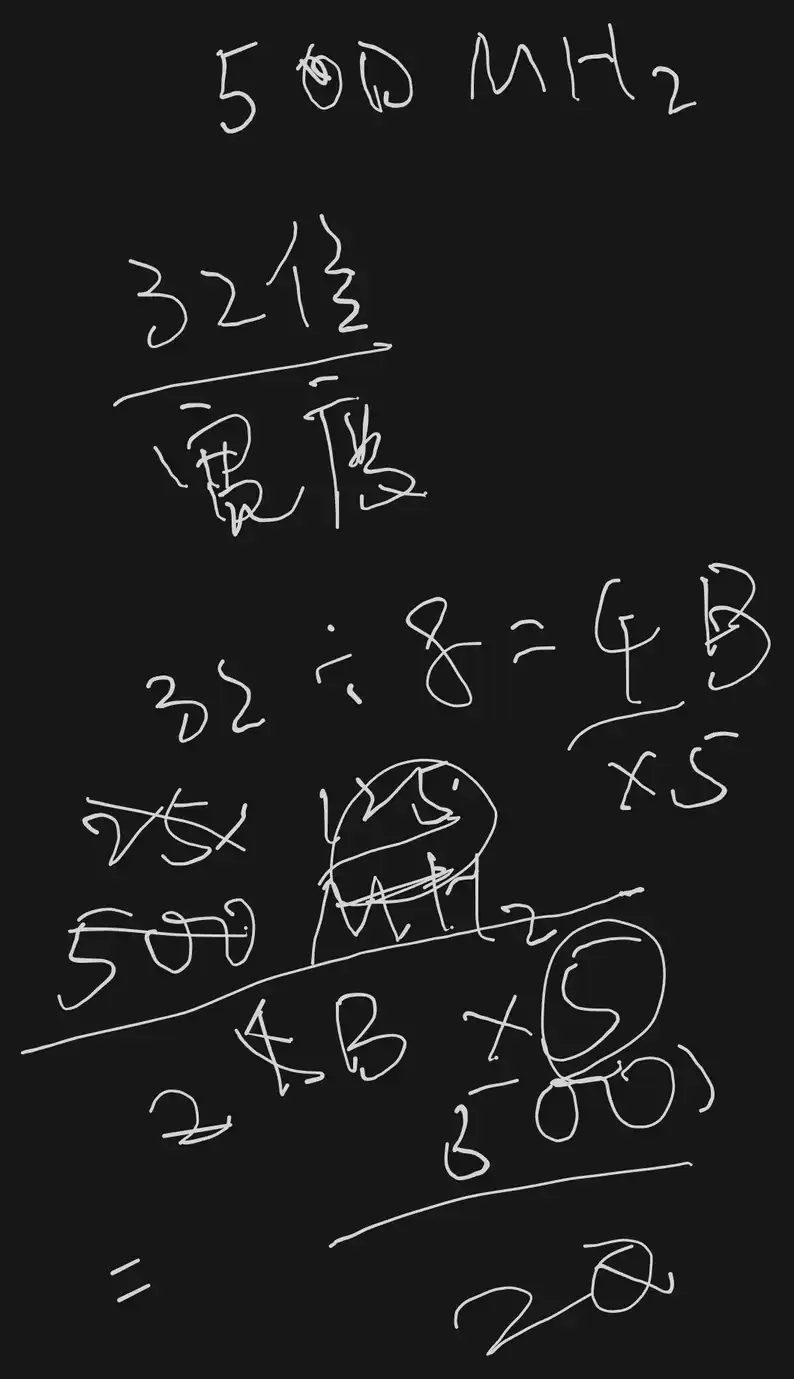 500 MHz
32倍
寬度
32 ÷ 8 = 4 B
× 5
25×
125
500 MHz
4B × 5
2
500
= 20